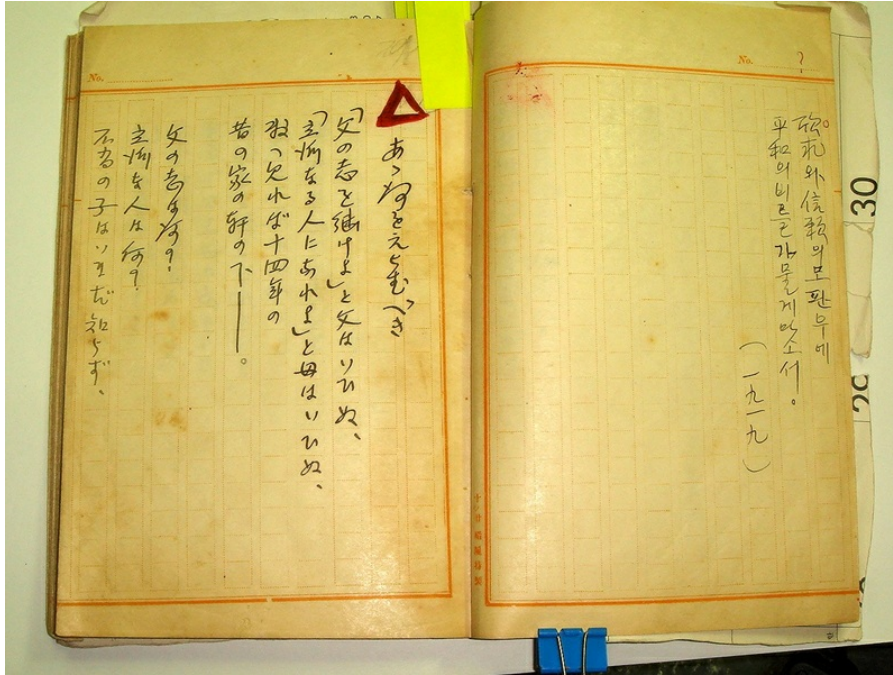 No.
?
와 信頼의 모판우에
平和의 비르근 가물게마소서。
(一九一九)
No.
あゝ何をえらむべき
「父の志を継げよ」と父はいひぬ、
「立派なる人になれよ」と母はいひぬ、
れば十四年の
昔の家の軒の下——。
父の志は何?
立派な人は何?
不肖の子はいまだ知らず、
30
29